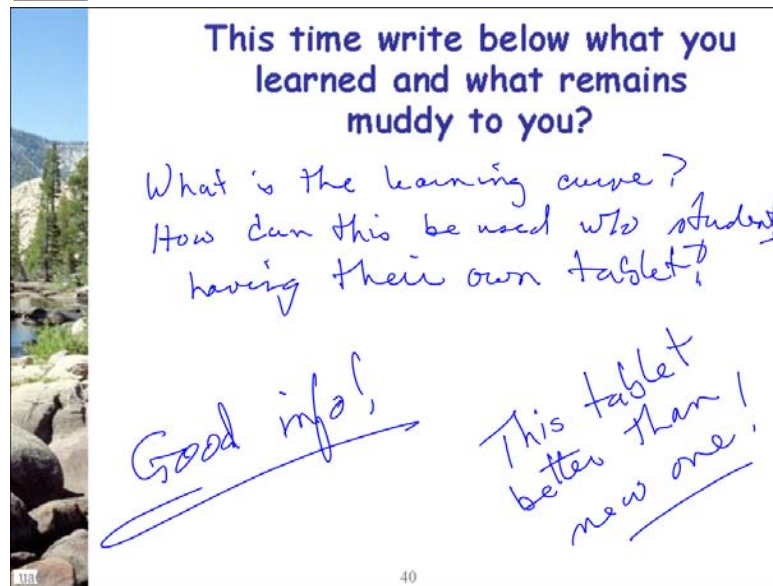 This time write below what you
learned and what remains
muddy to you?
What is the learning curve?
How can this be used w/o students
having their own tablet?
Good info!
This tablet
better than
new one!
ua
40